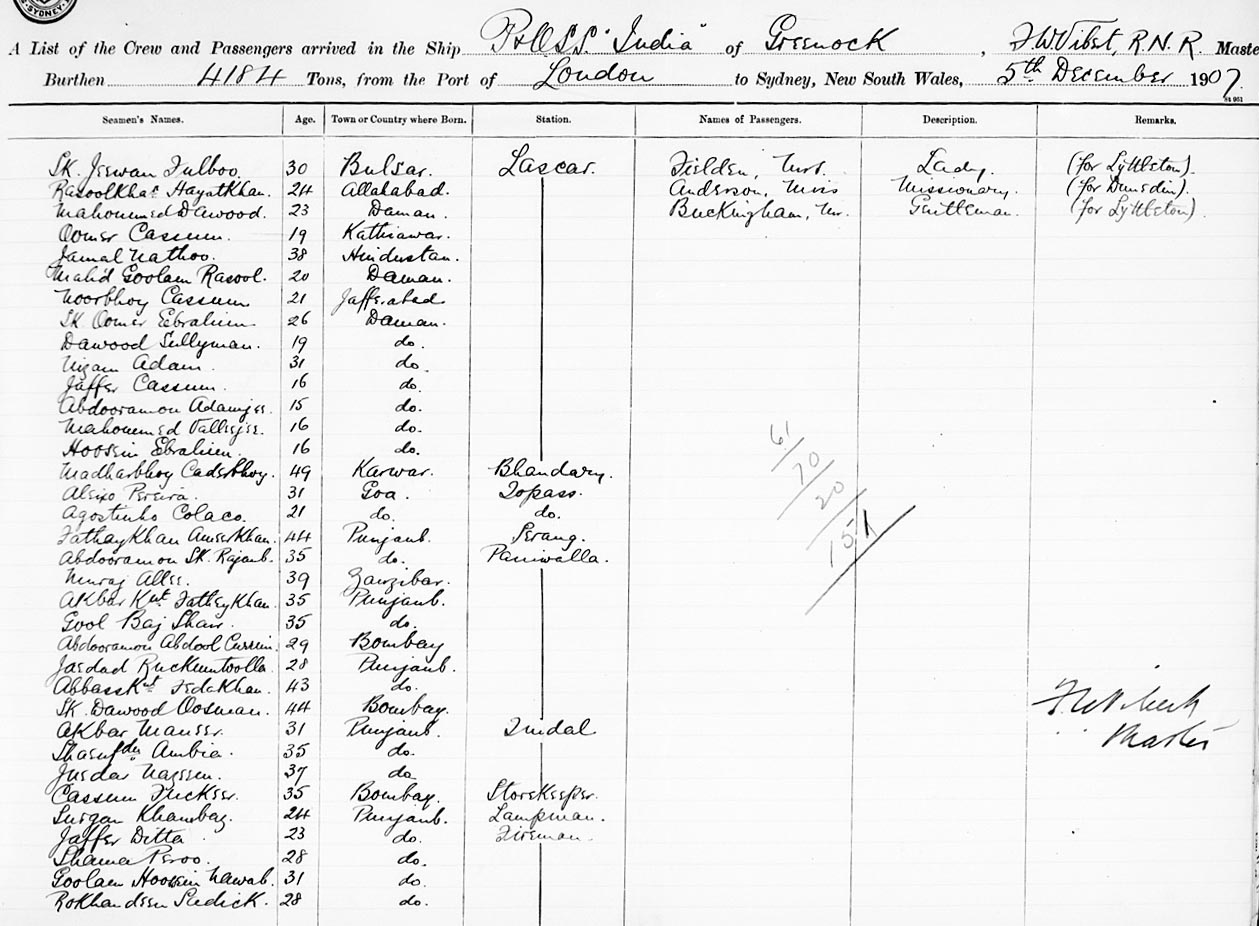 SYDNEY
A List of the Crew and Passengers arrived in the Ship P&O S.S. "India" of Greenock, F.W. Vibert, R.N.R. Maste
Burthen 4184 Tons, from the Port of London to Sydney, New South Wales, 5th December 1907.
St 961
Seamen's Names. Age. Town or Country where Born. Station. Names of Passengers. Description. Remarks.
Sk. Jeewan Fulboo 30 Bulsar. Lascar. Fielden, Mrs. Lady. (for Lyttleton).
Rasoolkhan Hayatkhan. 24 Allahabad. Anderson, Miss Missionary. (for Dunedin).
Mahommed Dawood. 23 Daman. Buckingham, Mr. Gentleman. (for Lyttleton).
Oomer Cassum. 19 Kathiawar.
Jamal Nathoo. 38 Hindustan.
Mahd Goolam Rasool. 20 Daman.
Noorbhoy Cassum 21 Jafferabad
Sk. Oomer Ebrahim 26 Daman.
Dawood Sullyman. 19 do.
Nizam Adam. 31 do.
Jaffer Cassum. 16 do.
Abdooramon Adamjee. 15 do.
Mahommed Valleejee. 16 do.
Hoosein Ebrahim. 16 do.
Madharbhoy Caderbhoy. 49 Karwar. Bhandary.
Aleixo Pereira. 31 Goa. Topass.
Agostinho Colaco. 21 do. do.
Fathay Khan Ameer Khan. 44 Punjaub. Serang.
Abdooramon Sk. Rajaub. 35 do. Paniwalla.
Allee. 39 Zanzibar.
Akbar Kut Fathey Khan. 35 Punjaub.
Gool Baj Shaw. 35 do.
Abdooramon Abdool Curreem. 29 Bombay
Jaedad Ruckumtoolla 28 Punjaub.
Abbass Kut Feda Khan. 43 do.
Sk. Dawood Oosman. 44 Bombay.
Akbar 31 Punjaub. Tindal
Ambia. 35 do.
37 do
Cassum Fuckeer. 35 Bombay. Storekeeper.
Khambaz. 24 Punjaub. Lampman.
Jaffer Ditta 23 do. Fireman.
Shama Peroo. 28 do.
Goolam Hoosein Nawab. 31 do.
Rokhandeen Sudick. 28 do.
61
70
20
151
F.W. Vibert
Master